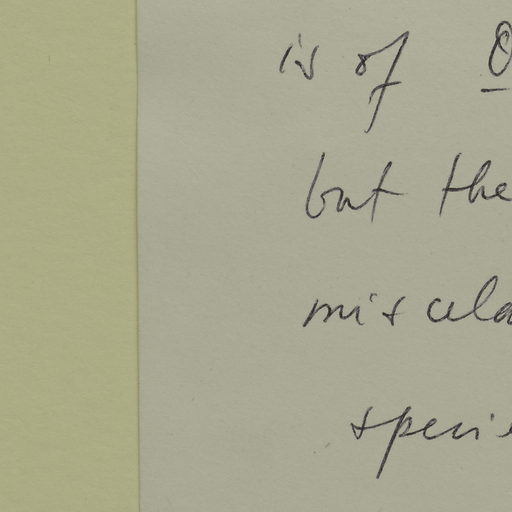 is of O
but the
miscela
specie